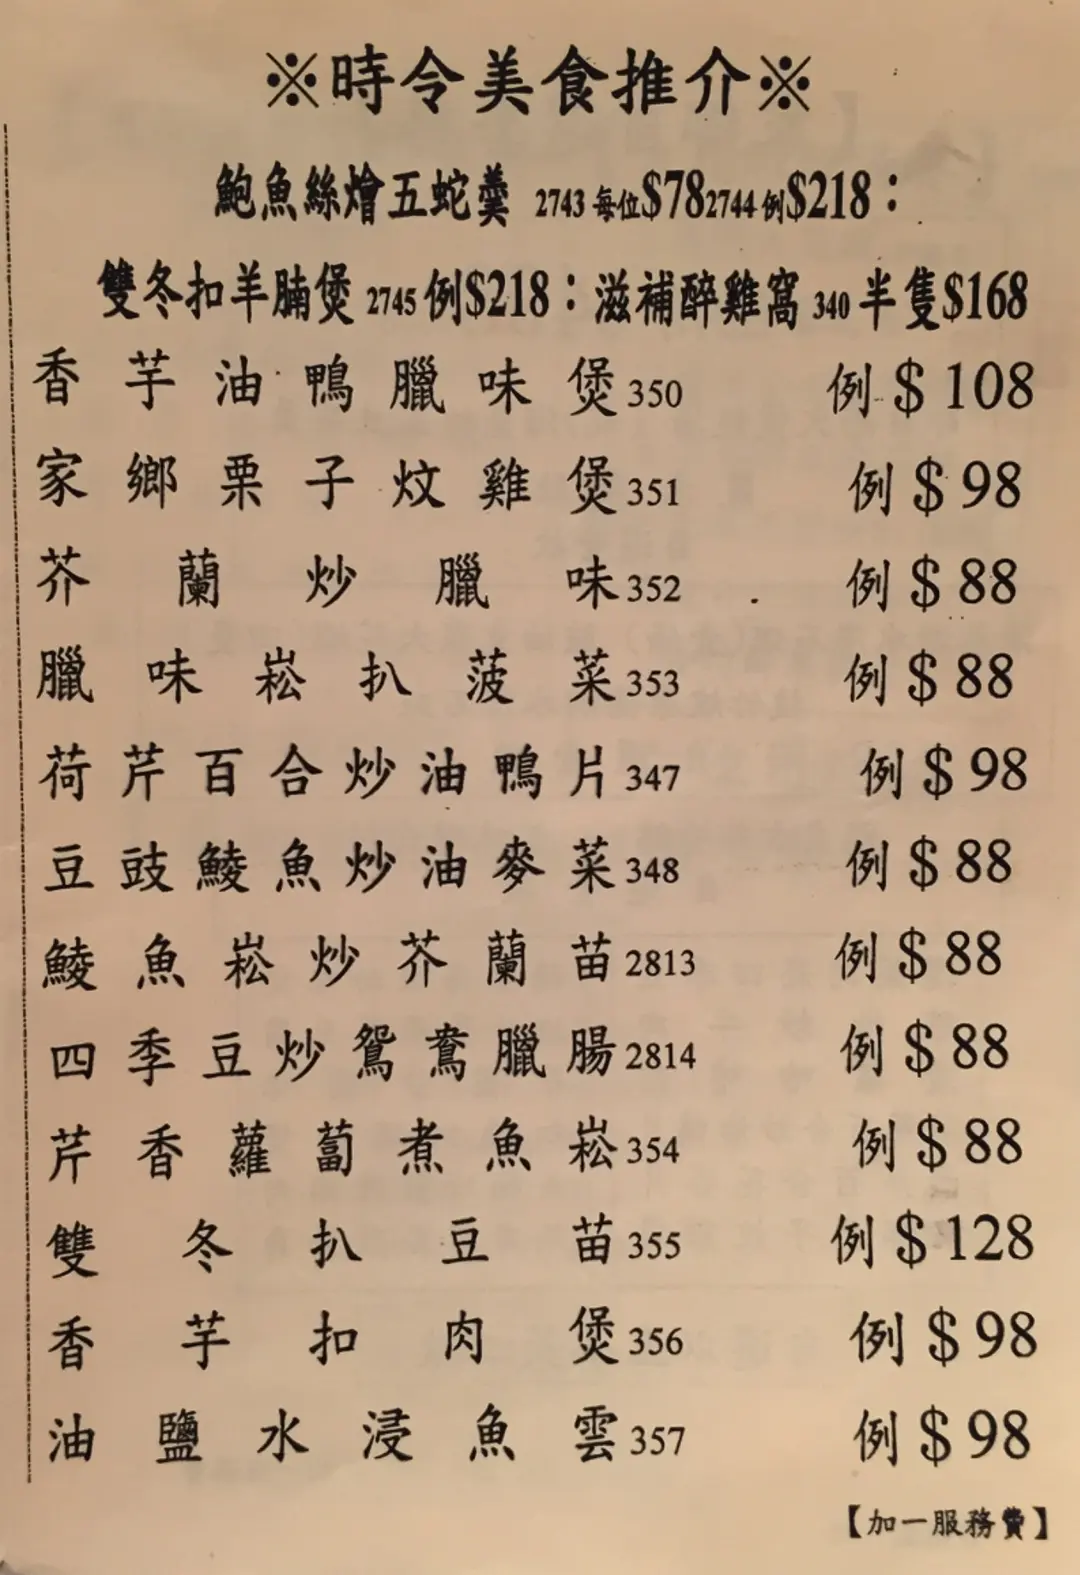 ※時令美食推介※
鮑魚絲燴五蛇羹 2743 每位$78 2744 例$218：
雙冬扣羊腩煲 2745 例$218：滋補醉雞窩 340 半隻$168
香芋油鴨臘味煲350 例$108
家鄉栗子炆雞煲351 例$98
芥蘭炒臘味352 例$88
臘味崧扒菠菜353 例$88
荷芹百合炒油鴨片347 例$98
豆豉鯪魚炒油麥菜348 例$88
鯪魚崧炒芥蘭苗2813 例$88
四季豆炒鴛鴦臘腸2814 例$88
芹香蘿蔔煮魚崧354 例$88
雙冬扒豆苗355 例$128
香芋扣肉煲356 例$98
油鹽水浸魚雲357 例$98
【加一服務費】